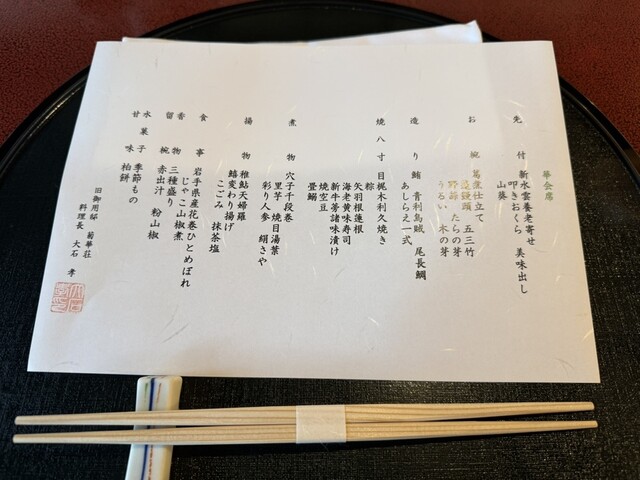 華会席
先付 新水雲養老寄せ 美味出し
叩きおくら
山葵
お椀 葛煮仕立て 五三竹
蓬饅頭 たらの芽
うるい 木の芽
造り 鮪 青利烏賊 尾長鯛
あしらえ一式
焼八寸 目梶木利久焼き
粽
矢羽根蓮根
海老黄味寿司
新牛蒡諸味漬け
焼空豆
畳鰯
煮物 穴子千段巻
里芋 焼目湯葉
彩り人参 絹さや
揚物 稚鮎天婦羅
鱚変わり揚げ
こごみ 抹茶塩
食事 岩手県産花巻ひとめぼれ
じゃこ山椒煮
香物 三種盛り
留椀 赤出汁 粉山椒
水菓子 季節もの
甘味 柏餅
旧御用邸 菊華荘
料理長 大石 孝